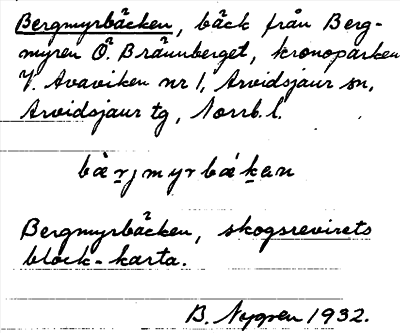 Bergmyrbäcken, bäck från Berg-
myren Ö. Brännberget, kronoparken
V. Avaviken nr 1, Arvidsjaur sn,
Arvidsjaur tg, Norrb. l.
bæ̀rjmyrbǽkan
Bergmyrbäcken, skogsrevirets
block-karta.
B. Nygren 1932.